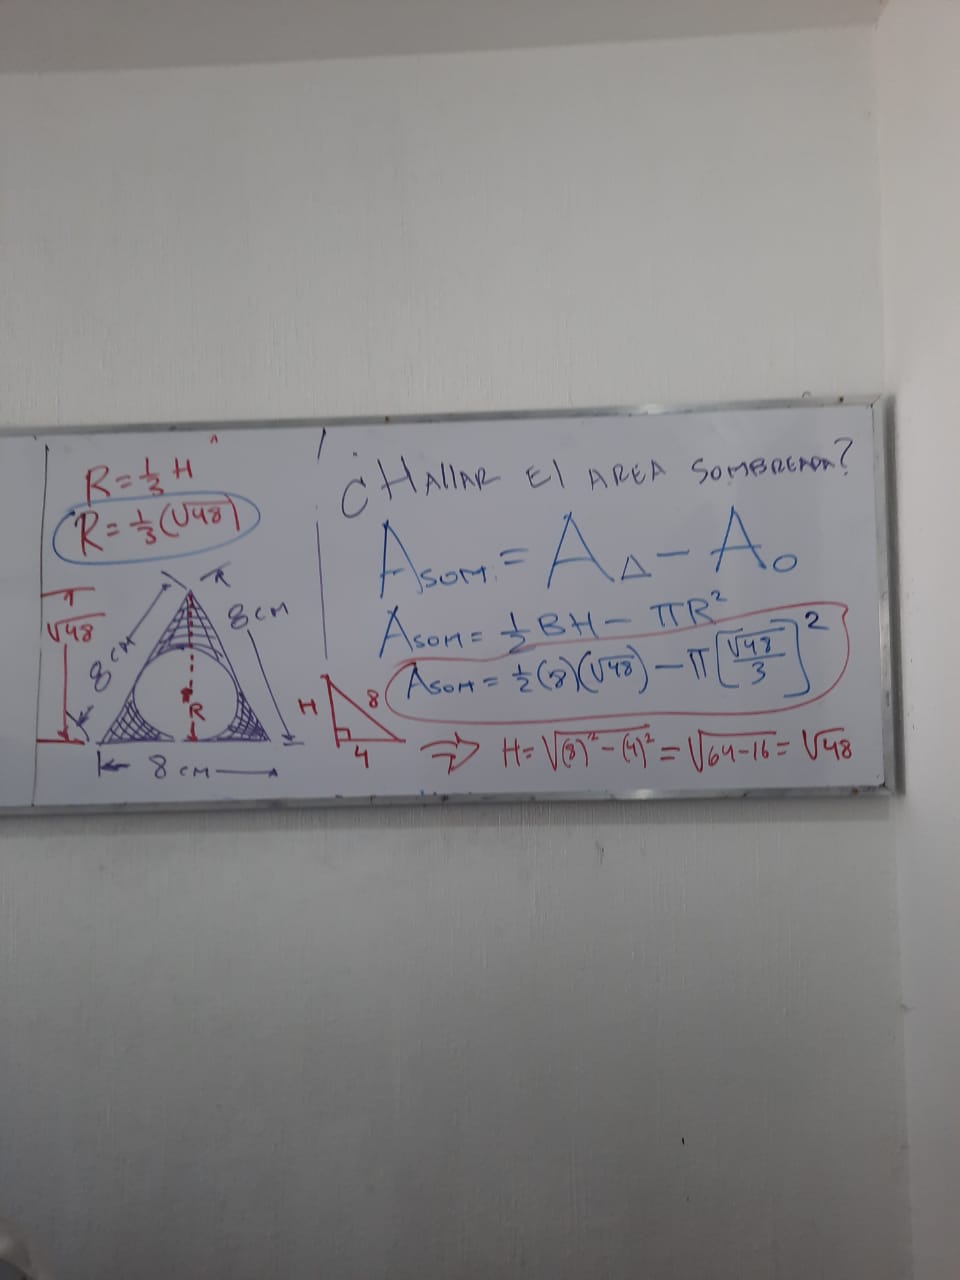 R = 1/3 H
R = 1/3 (√48)
√48
8 cm
8 cm
R
8 cm
¿Hallar el area sombreada?
A som. = A△ - A○
A som = 1/2 BH - πR²
A som = 1/2 (8)(√48) - π[√48/3]²
H
8
4
⇒ H = √(8)² - (4)² = √64-16 = √48